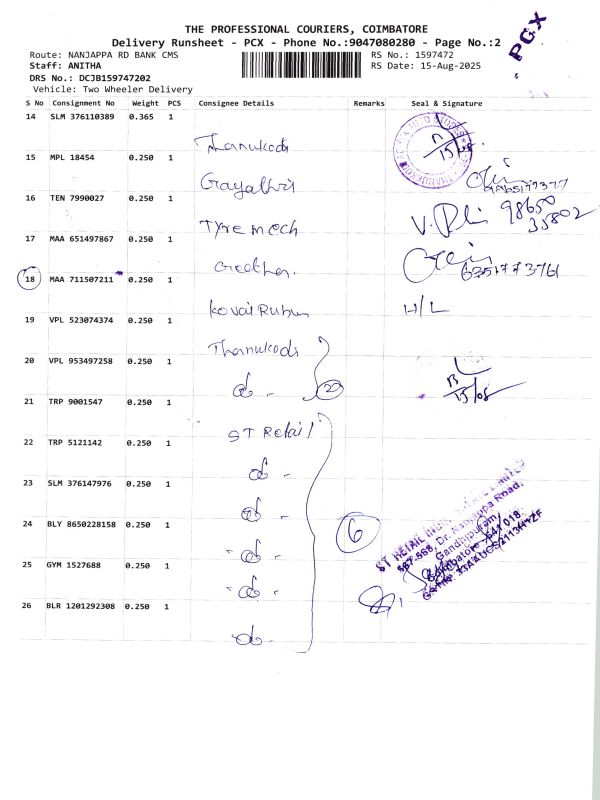 THE PROFESSIONAL COURIERS, COIMBATORE
Delivery Runsheet - PCX - Phone No.:9047080280 - Page No.:2
PCX
Route: NANJAPPA RD BANK CMS RS No.: 1597472
Staff: ANITHA RS Date: 15-Aug-2025
DRS No.: DCJB159747202
Vehicle: Two Wheeler Delivery
S No Consignment No Weight PCS Consignee Details Remarks Seal & Signature
14 SLM 376110389 0.365 1
Thanukodi 15/08
15 MPL 18454 0.250 1
Gayathri
16 TEN 7990027 0.250 1
Tyre mech V. 98650 35802
17 MAA 651497867 0.250 1
Geetha. 6351773761
18 MAA 711507211 0.250 1
Kovai Rubber H/L
19 VPL 523074374 0.250 1
Thanukodi
20 VPL 953497258 0.250 1
do. 2 15/08
21 TRP 9001547 0.250 1
ST Retail
22 TRP 5121142 0.250 1
do -
23 SLM 376147976 0.250 1
do -
24 BLY 8650228158 0.250 1
-do - 6
25 GYM 1527688 0.250 1
-do -
26 BLR 1201292308 0.250 1
do -
ST RETAIL
Dr. Nanjappa Road,
Gandhipuram,
Coimbatore - 641 018.